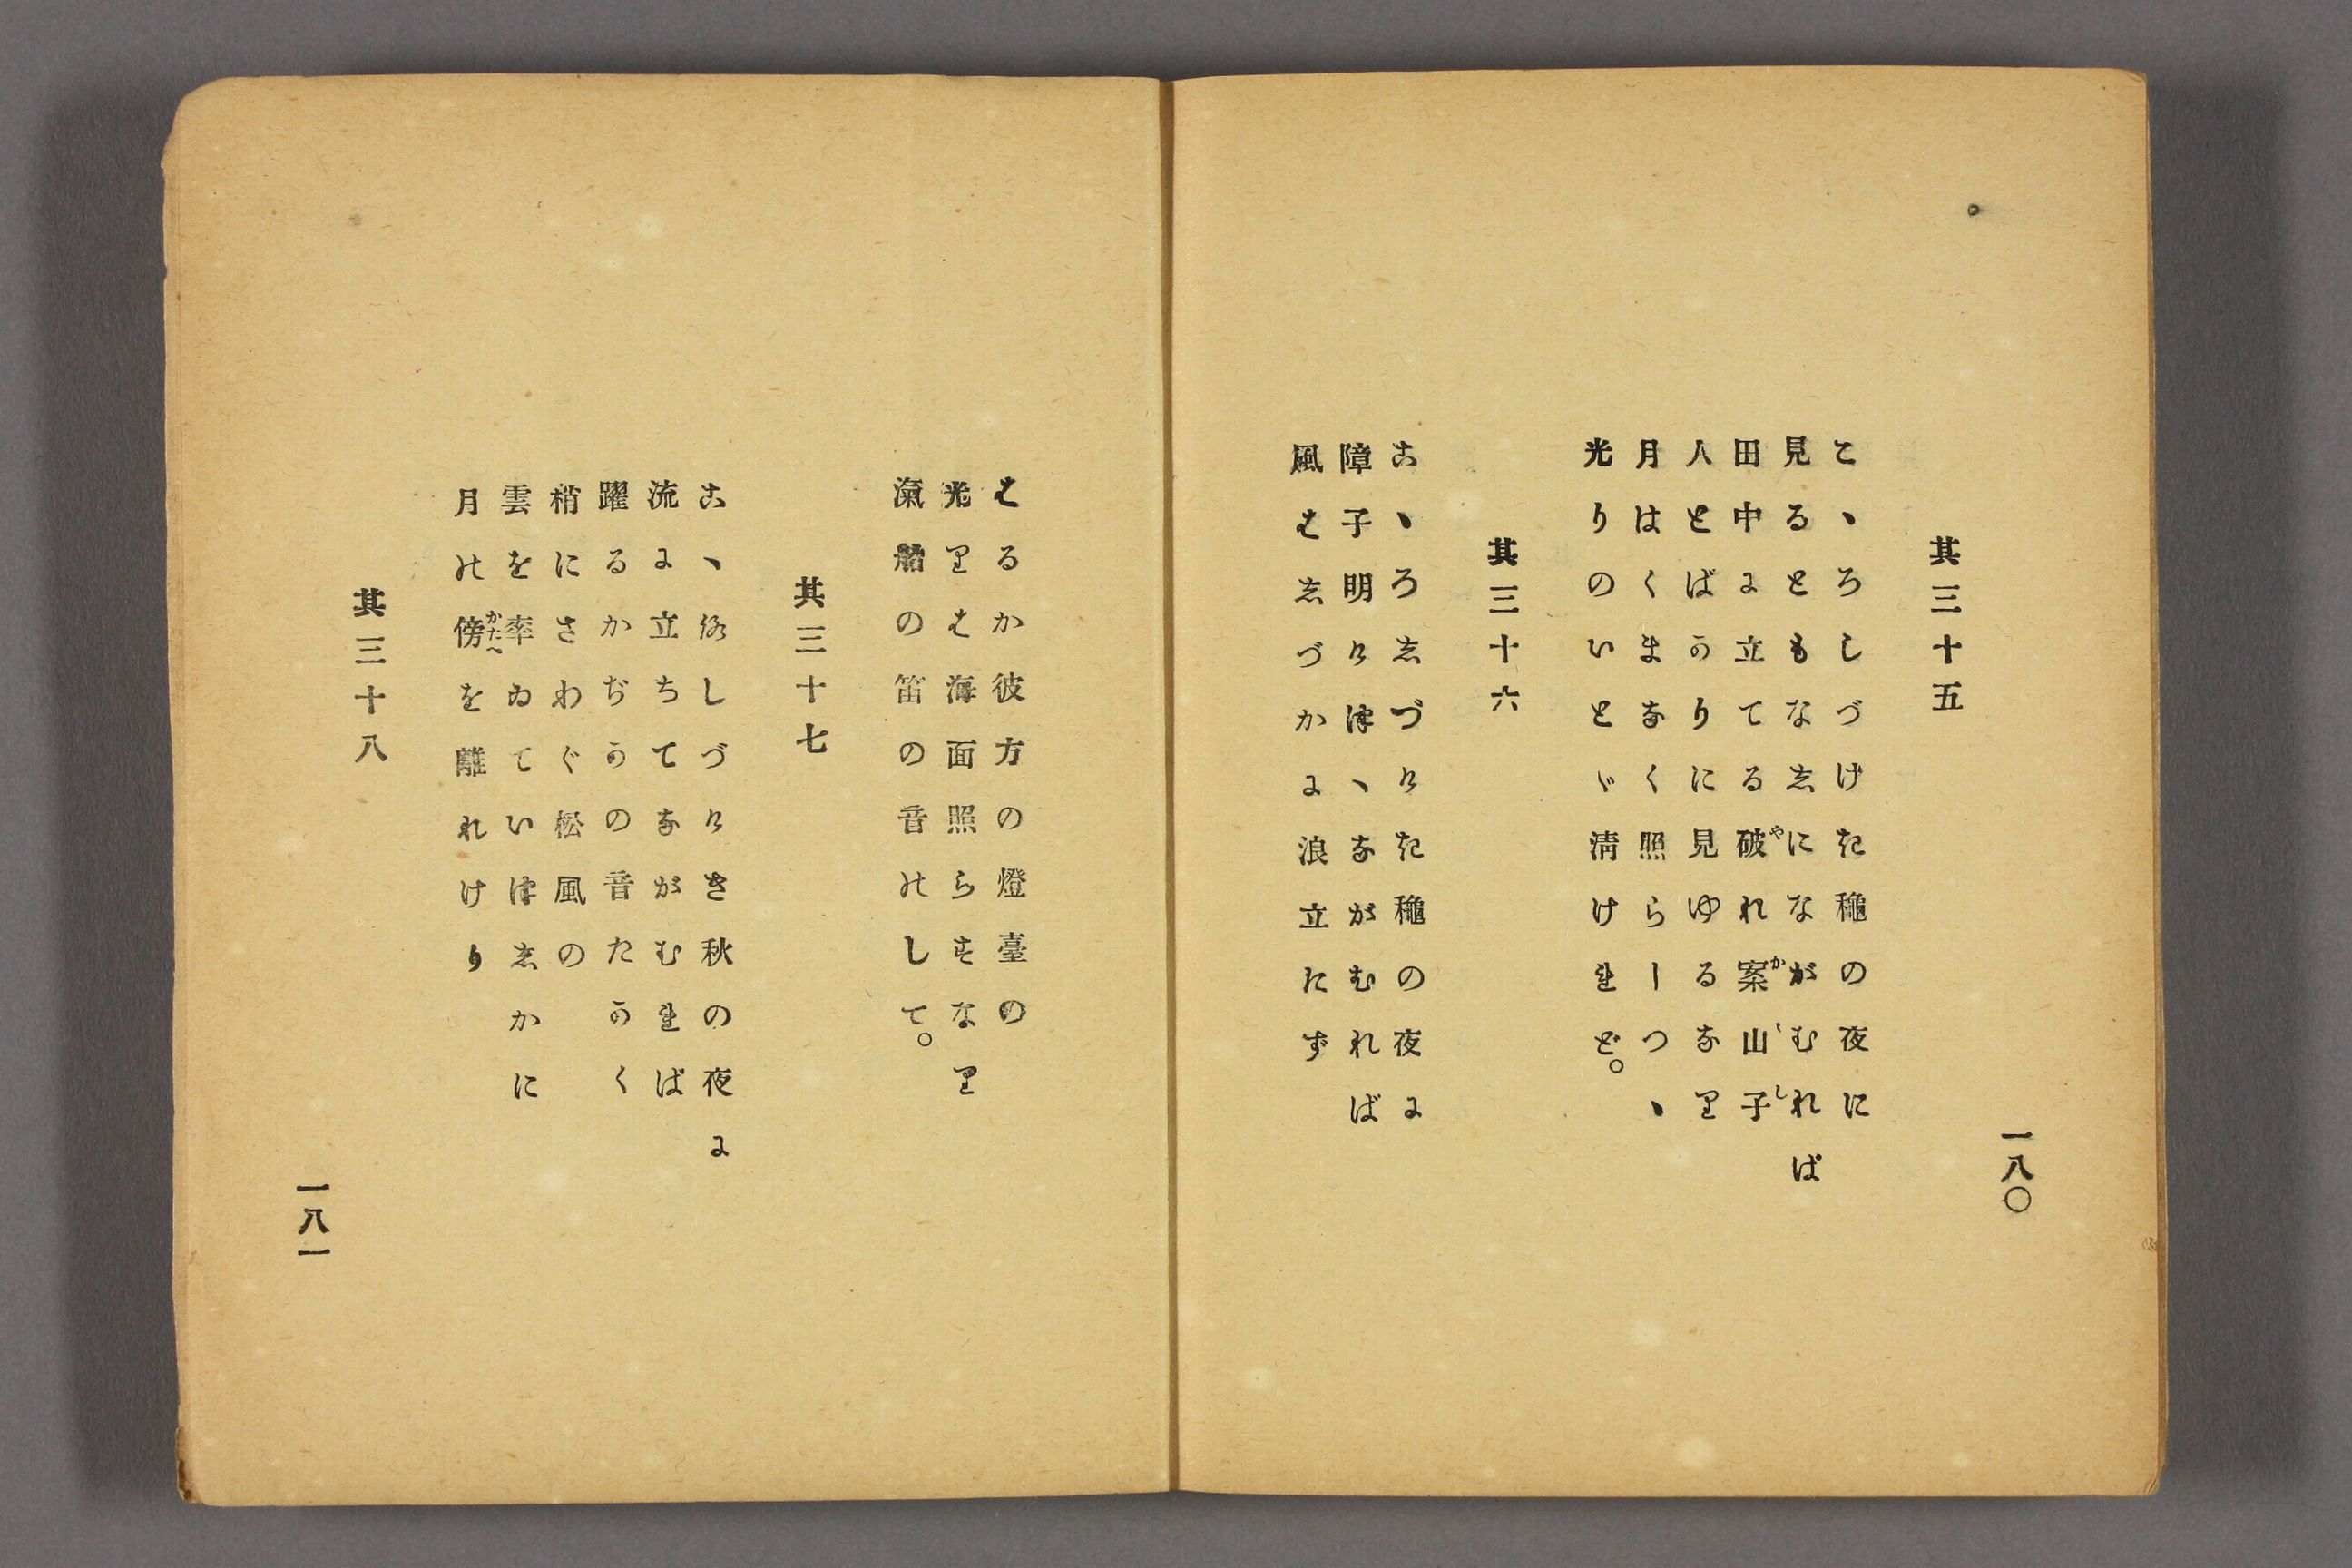 一八〇
其三十五
こゝろしづけき龝の夜に
見るともなしにながむれば
田中に立てる破れ案山子
や
かゝし
人とばかりに見ゆるなり
月はくまなく照らしつゝ
光りのいとゞ淸けれど。
其三十六
こゝろしづけき龝の夜に
障子明けつゝながむれば
風はしづかに浪立たず
はるか彼方の燈臺の
光りは海面照らすなり
滊船の笛の音のして。
其三十七
こゝろしづけき秋の夜に
流に立ちてながむれば
躍るかぢかの音たかく
梢にさわぐ松風の
雲を率ゐていつしかに
月の傍を離れけり
かたへ
其三十八
一八一